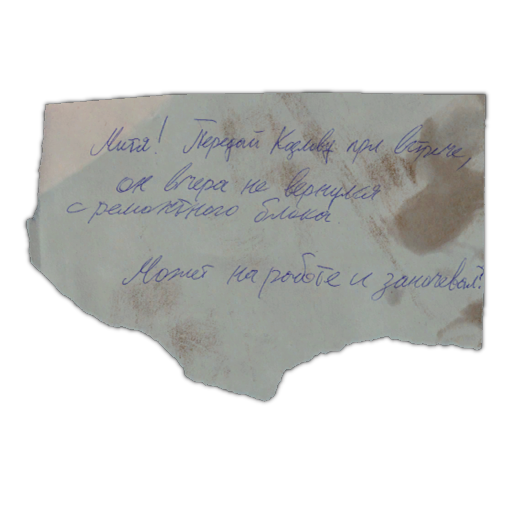 Митя! Передай Козлову при встрече,
он вчера не вернулся
с ремонтного блока
Может на работе и заночевал?